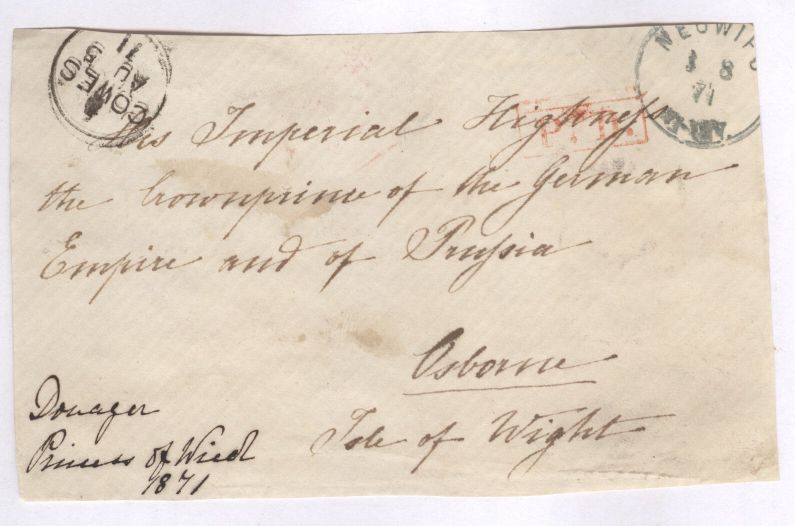 COWES
AU 3
71
NEUWIED
1 8
71
P.D.
His Imperial Highness
the Crownprince of the German
Empire and of Prussia
Osborne
Isle of Wight
Dowager
Princess of Wied
1871